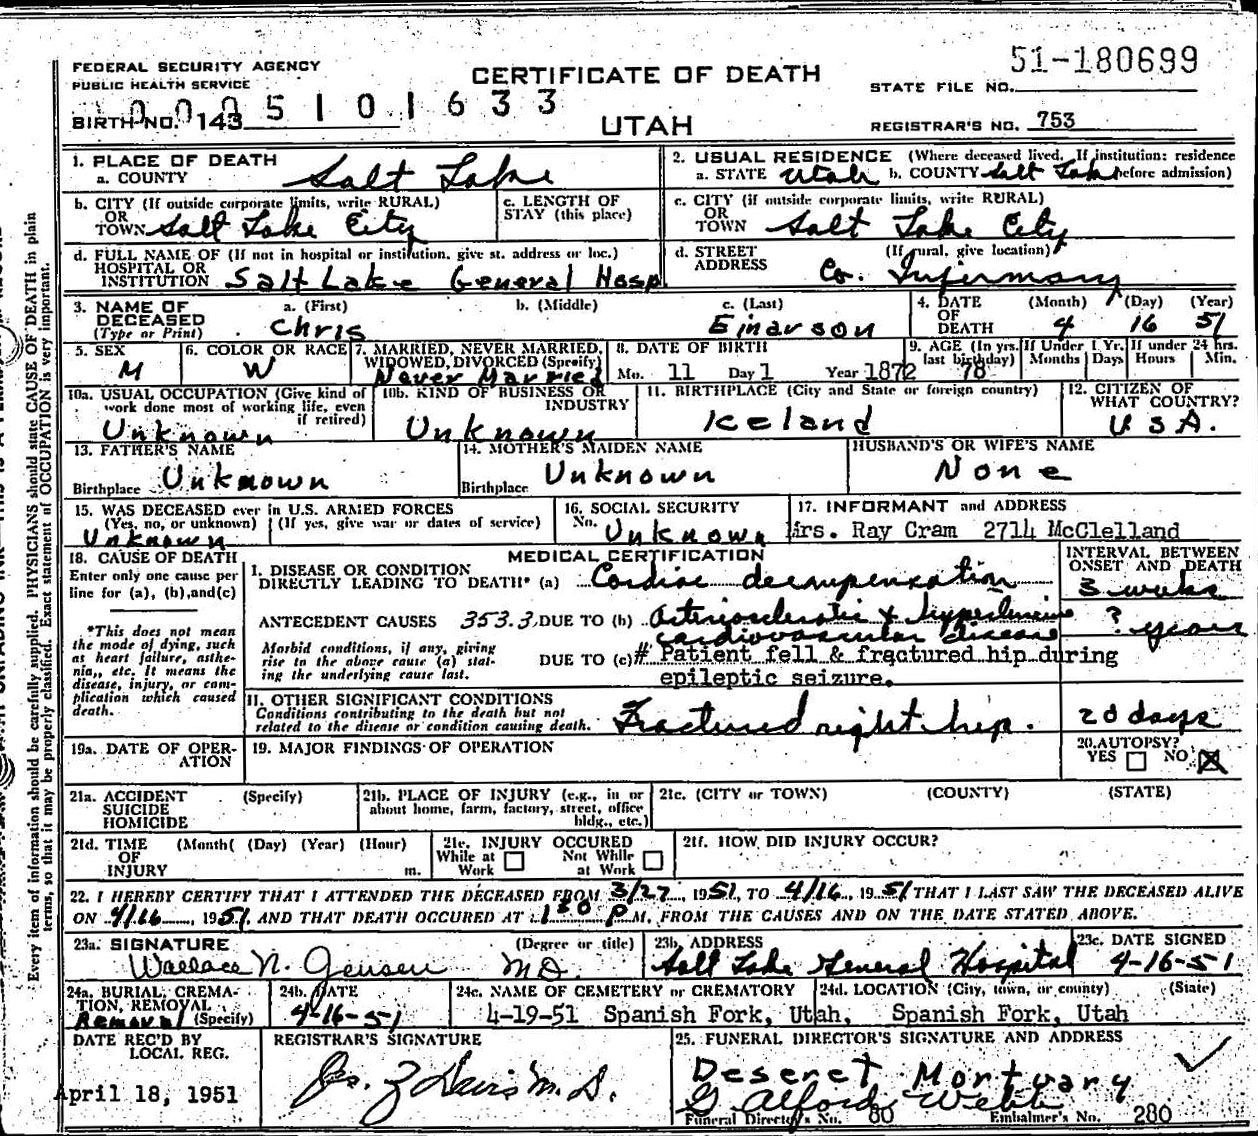 51-180699
FEDERAL SECURITY AGENCY
PUBLIC HEALTH SERVICE
CERTIFICATE OF DEATH
STATE FILE NO.
0005101633
BIRTH NO. 143
UTAH
REGISTRAR'S NO. 753
1. PLACE OF DEATH
a. COUNTY Salt Lake
2. USUAL RESIDENCE (Where deceased lived. If institution: residence
a. STATE Utah b. COUNTY Salt Lake before admission)
b. CITY (If outside corporate limits, write RURAL)
OR
TOWN Salt Lake City
c. LENGTH OF
STAY (this place)
c. CITY (if outside corporate limits, write RURAL)
OR
TOWN Salt Lake City
d. FULL NAME OF (If not in hospital or institution, give st. address or loc.)
HOSPITAL OR
INSTITUTION Salt Lake General Hosp
d. STREET (If rural, give location)
ADDRESS Co. Infirmary
3. NAME OF DECEASED
(Type or Print)
a. (First) b. (Middle) c. (Last)
Chris Einarson
4. DATE OF DEATH (Month) (Day) (Year)
4 16 51
5. SEX
M
6. COLOR OR RACE
W
7. MARRIED, NEVER MARRIED,
WIDOWED, DIVORCED (Specify)
Never Married
8. DATE OF BIRTH
Mo. 11 Day 1 Year 1872
9. AGE (In yrs. last birthday) If Under 1 Yr. If under 24 hrs.
78 Months Days Hours Min.
10a. USUAL OCCUPATION (Give kind of
work done most of working life, even
if retired)
Unknown
10b. KIND OF BUSINESS OR
INDUSTRY
Unknown
11. BIRTHPLACE (City and State or foreign country)
Iceland
12. CITIZEN OF
WHAT COUNTRY?
USA.
13. FATHER'S NAME
Unknown
Birthplace
14. MOTHER'S MAIDEN NAME
Unknown
Birthplace
HUSBAND'S OR WIFE'S NAME
None
15. WAS DECEASED ever in U.S. ARMED FORCES
(Yes, no, or unknown) (If yes, give war or dates of service)
Unknown
16. SOCIAL SECURITY
No. Unknown
17. INFORMANT and ADDRESS
Mrs. Ray Cram 2714 McClelland
18. CAUSE OF DEATH
Enter only one cause per
line for (a), (b), and (c)
*This does not mean
the mode of dying, such
as heart failure, asthe-
nia,, etc. It means the
disease, injury, or com-
plication which caused
death.
MEDICAL CERTIFICATION
INTERVAL BETWEEN
ONSET AND DEATH
1. DISEASE OR CONDITION
DIRECTLY LEADING TO DEATH* (a) Cardiac decompensation
3 weeks
ANTECEDENT CAUSES 353.3 DUE TO (b) Arteriosclerotic & hypertensive
cardiovascular disease
? years
Morbid conditions, if any, giving
rise to the above cause (a) stat-
ing the underlying cause last.
DUE TO (c) # Patient fell & fractured hip during
epileptic seizure.
11. OTHER SIGNIFICANT CONDITIONS
Conditions contributing to the death but not
related to the disease or condition causing death.
Fractured right hip.
20 days
19a. DATE OF OPER-
ATION
19. MAJOR FINDINGS OF OPERATION
20. AUTOPSY?
YES NO X
21a. ACCIDENT (Specify)
SUICIDE
HOMICIDE
21b. PLACE OF INJURY (e.g., in or
about home, farm, factory, street, office
bldg., etc.)
21c. (CITY or TOWN) (COUNTY) (STATE)
21d. TIME (Month( (Day) (Year) (Hour)
OF
INJURY m.
21e. INJURY OCCURED
While at Work Not While at Work
21f. HOW DID INJURY OCCUR?
22. I HEREBY CERTIFY THAT I ATTENDED THE DECEASED FROM 3/27, 1951, TO 4/16, 1951 THAT I LAST SAW THE DECEASED ALIVE
ON 4/16, 1951, AND THAT DEATH OCCURED AT 1 30 P M, FROM THE CAUSES AND ON THE DATE STATED ABOVE.
23a. SIGNATURE (Degree or title)
Wallace N. Jensen M.D.
23b. ADDRESS
Salt Lake General Hospital
23c. DATE SIGNED
4-16-51
24a. BURIAL, CREMA-
TION, REMOVAL
Removal (Specify)
24b. DATE
4-16-51
24c. NAME OF CEMETERY or CREMATORY
4-19-51 Spanish Fork, Utah,
24d. LOCATION (City, town, or county) (State)
Spanish Fork, Utah
DATE REC'D BY
LOCAL REG.
April 18, 1951
REGISTRAR'S SIGNATURE
Jas. Z Davis M.D.
25. FUNERAL DIRECTOR'S SIGNATURE AND ADDRESS
Deseret Mortuary
G Alford Webb
Funeral Director's No. 80 Embalmer's No. 280
Every item of information should be carefully supplied. PHYSICIANS should state CAUSE OF DEATH in plain
terms, so that it may be properly classified. Exact statement of OCCUPATION is very important.